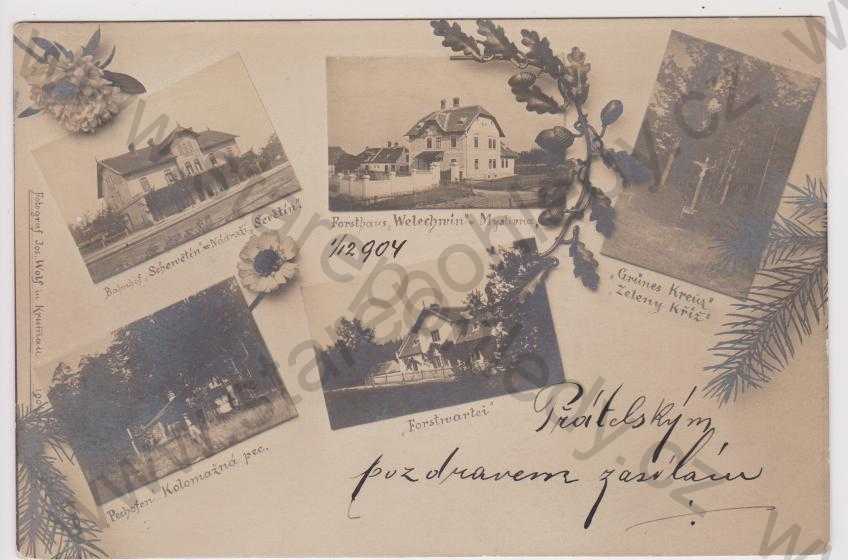 Bahnhof „Schewětin" - Nádraží „Ševětín"
Forsthaus „Welechwin" - Myslivna
1/12 904
„Grünes Kreuz"
„Zelený Kříž"
Fotograf Jos. Wolf in Krumau
„Pechofen" Kolomažná pec.
„Forstwartei"
Přátelským
pozdravem zasílám